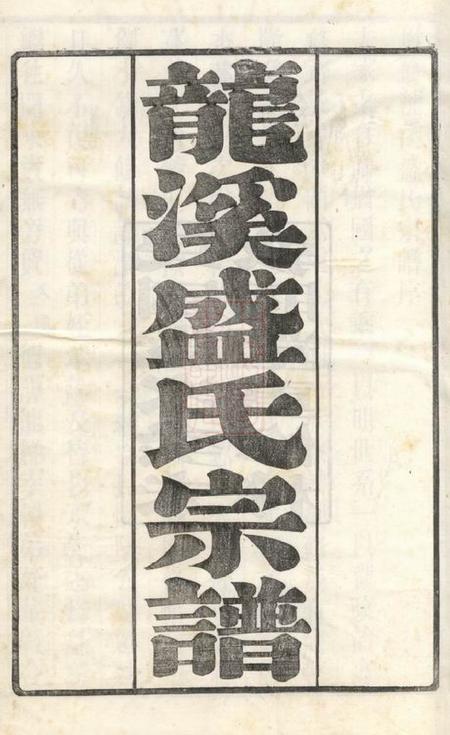 龍溪盛氏宗譜